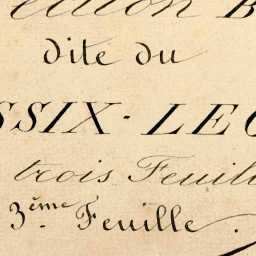 dite du
SSIX-LE
trois Feuill
3ème Feuille.